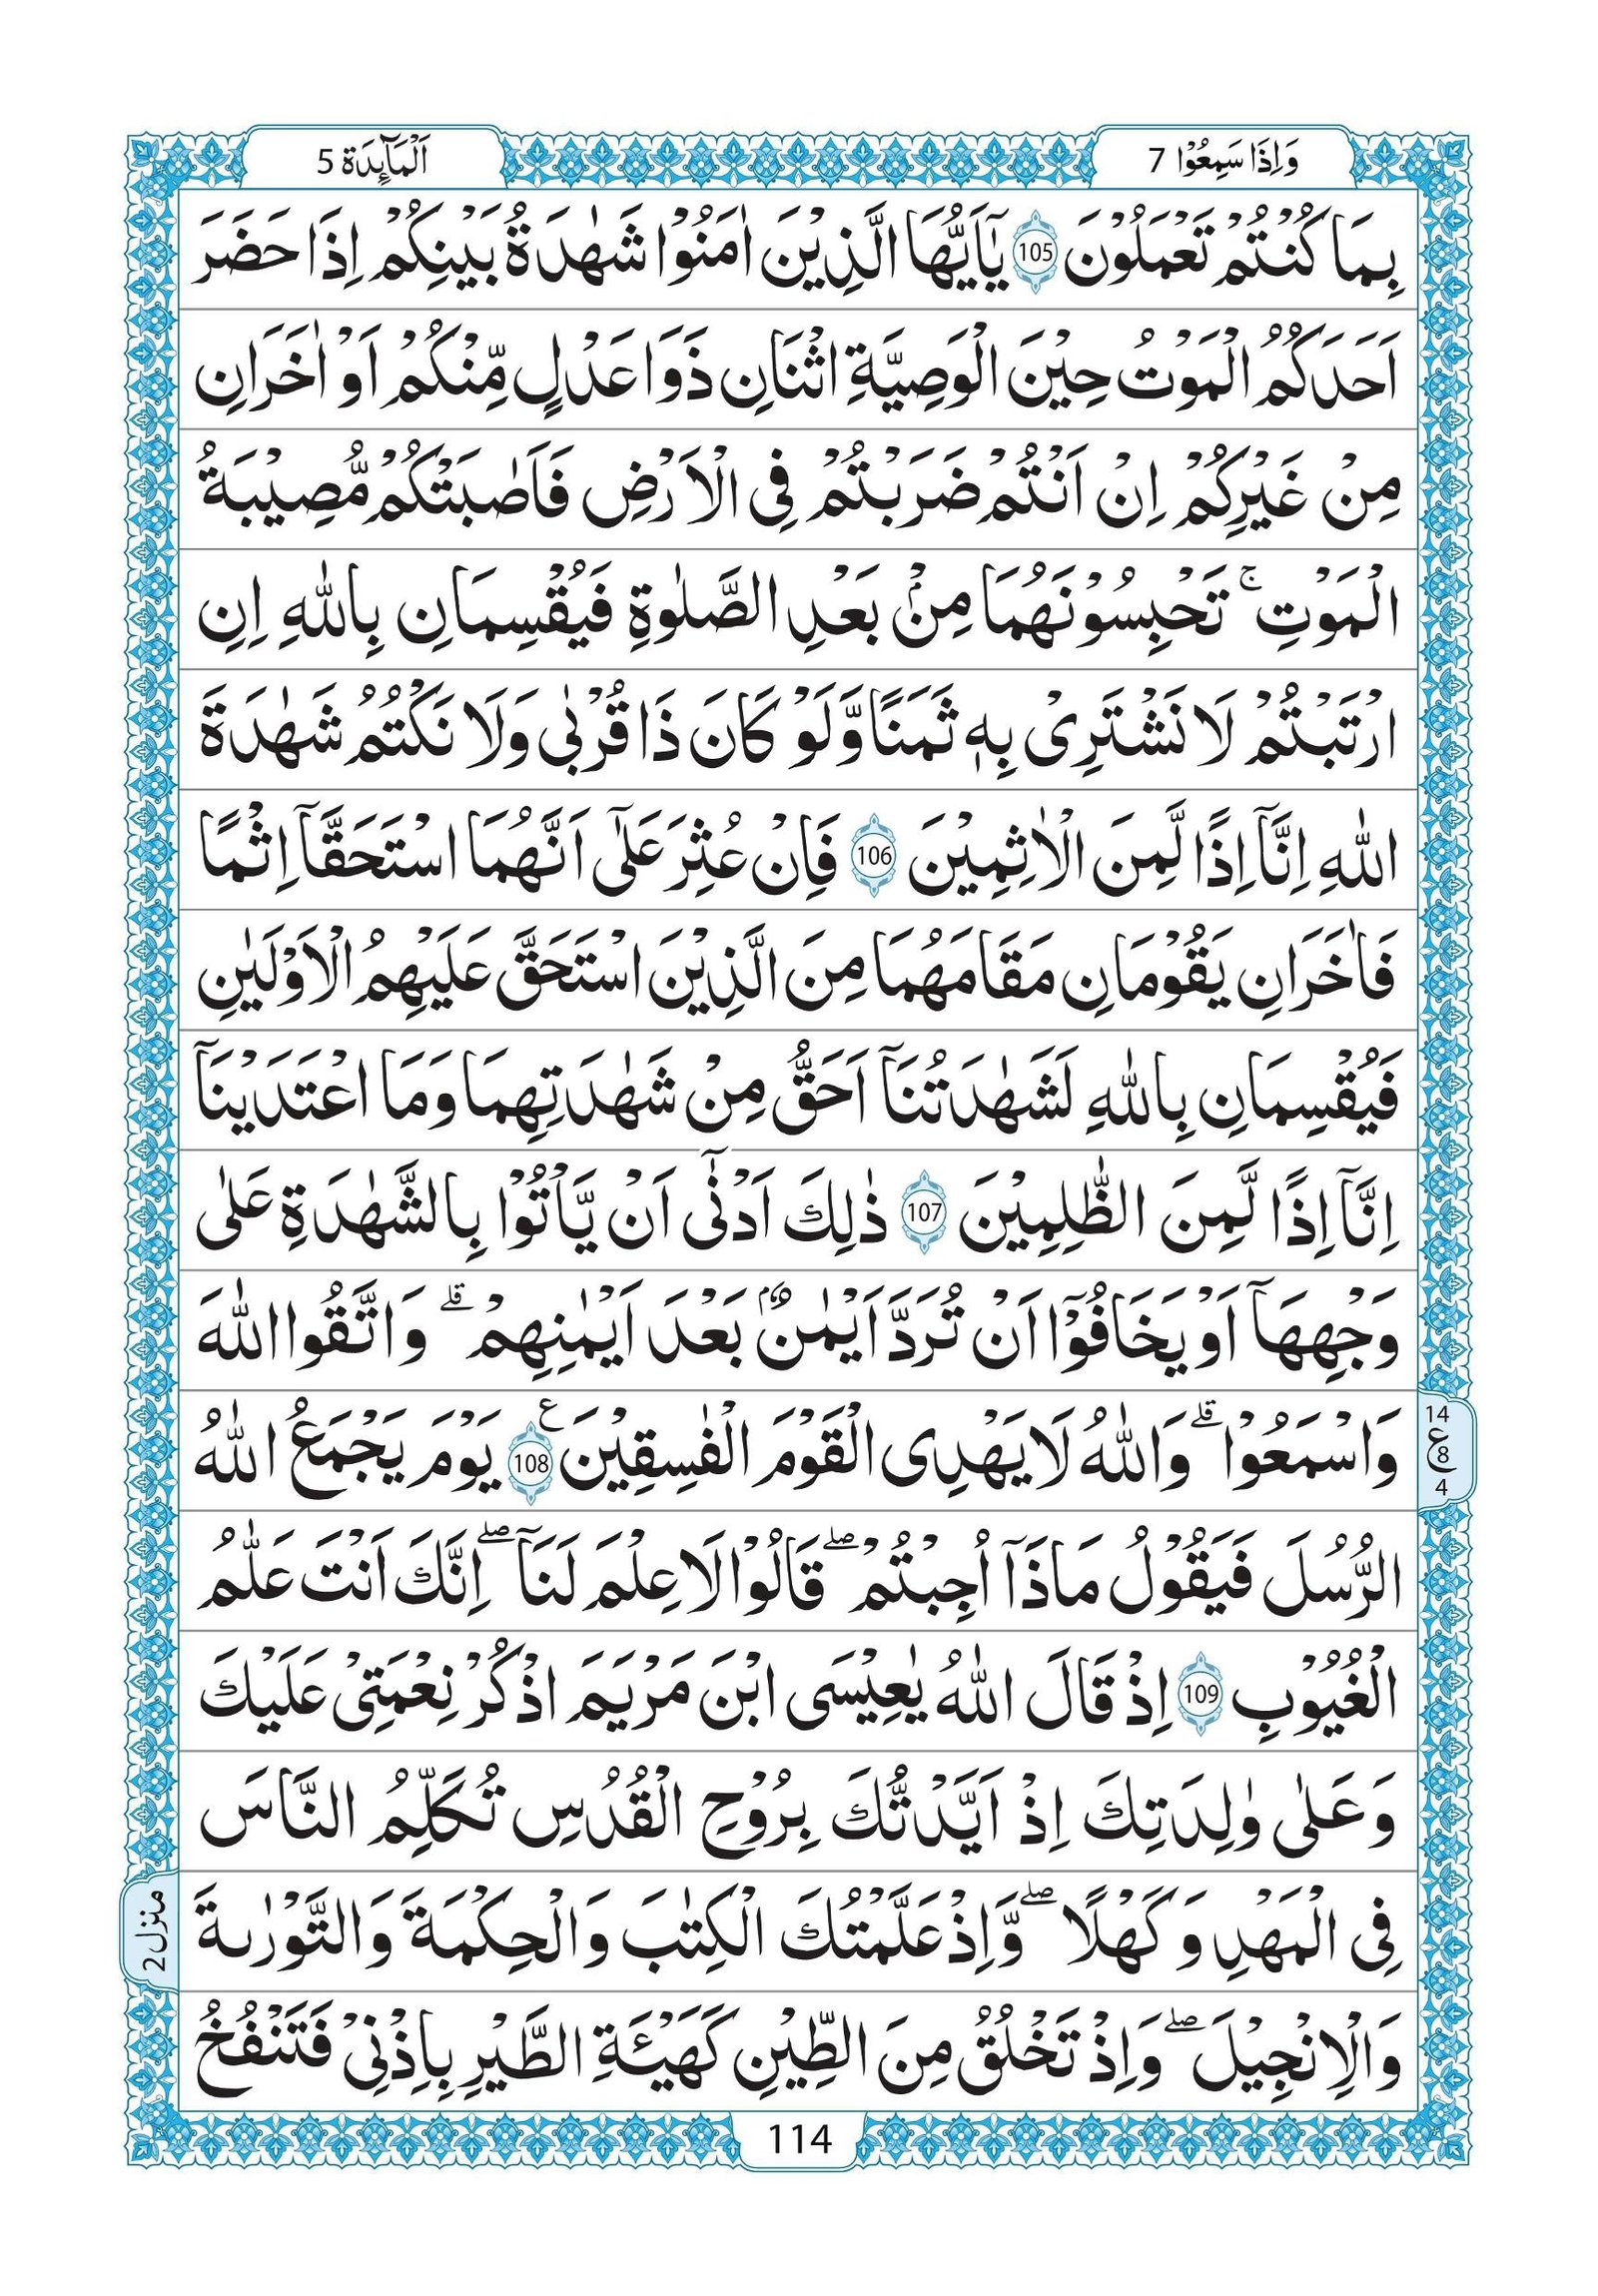 وَاِذَا سَمِعُوْا 7
اَلْمَآئِدَة 5
بِمَا كُنْتُمْ تَعْمَلُوْنَ 105 يٰٓاَيُّهَا الَّذِيْنَ اٰمَنُوْا شَهٰدَةُ بَيْنِكُمْ اِذَا حَضَرَ
اَحَدَكُمُ الْمَوْتُ حِيْنَ الْوَصِيَّةِ اثْنَانِ ذَوَا عَدْلٍ مِّنْكُمْ اَوْ اٰخَرَانِ
مِنْ غَيْرِكُمْ اِنْ اَنْتُمْ ضَرَبْتُمْ فِى الْاَرْضِ فَاَصٰبَتْكُمْ مُّصِيْبَةُ
الْمَوْتِ ۚ تَحْبِسُوْنَهُمَا مِنْۢ بَعْدِ الصَّلٰوةِ فَيُقْسِمَانِ بِاللّٰهِ اِنِ
ارْتَبْتُمْ لَا نَشْتَرِىْ بِهٖ ثَمَنًا وَّلَوْ كَانَ ذَا قُرْبٰى وَلَا نَكْتُمُ شَهٰدَةَ
اللّٰهِ اِنَّآ اِذًا لَّمِنَ الْاٰثِمِيْنَ 106 فَاِنْ عُثِرَ عَلٰٓى اَنَّهُمَا اسْتَحَقَّآ اِثْمًا
فَاٰخَرَانِ يَقُوْمَانِ مَقَامَهُمَا مِنَ الَّذِيْنَ اسْتَحَقَّ عَلَيْهِمُ الْاَوْلَيٰنِ
فَيُقْسِمَانِ بِاللّٰهِ لَشَهٰدَتُنَآ اَحَقُّ مِنْ شَهٰدَتِهِمَا وَمَا اعْتَدَيْنَآ
اِنَّآ اِذًا لَّمِنَ الظّٰلِمِيْنَ 107 ذٰلِكَ اَدْنٰٓى اَنْ يَّاْتُوْا بِالشَّهٰدَةِ عَلٰى
وَجْهِهَآ اَوْ يَخَافُوْٓا اَنْ تُرَدَّ اَيْمٰنٌۢ بَعْدَ اَيْمٰنِهِمْ ۗ وَاتَّقُوا اللّٰهَ
وَاسْمَعُوْا ۗ وَاللّٰهُ لَا يَهْدِى الْقَوْمَ الْفٰسِقِيْنَ ع 108 يَوْمَ يَجْمَعُ اللّٰهُ
14 ع 8 4
الرُّسُلَ فَيَقُوْلُ مَاذَآ اُجِبْتُمْ ۖ قَالُوْا لَا عِلْمَ لَنَآ ۖ اِنَّكَ اَنْتَ عَلّٰمُ
الْغُيُوْبِ 109 اِذْ قَالَ اللّٰهُ يٰعِيْسَى ابْنَ مَرْيَمَ اذْكُرْ نِعْمَتِىْ عَلَيْكَ
وَعَلٰى وٰلِدَتِكَ اِذْ اَيَّدْتُّكَ بِرُوْحِ الْقُدُسِ تُكَلِّمُ النَّاسَ
فِى الْمَهْدِ وَكَهْلًا ۖ وَّاِذْ عَلَّمْتُكَ الْكِتٰبَ وَالْحِكْمَةَ وَالتَّوْرٰىةَ
منزل 2
وَالْاِنْجِيْلَ ۖ وَاِذْ تَخْلُقُ مِنَ الطِّيْنِ كَهَيْـَٔةِ الطَّيْرِ بِاِذْنِىْ فَتَنْفُخُ
114